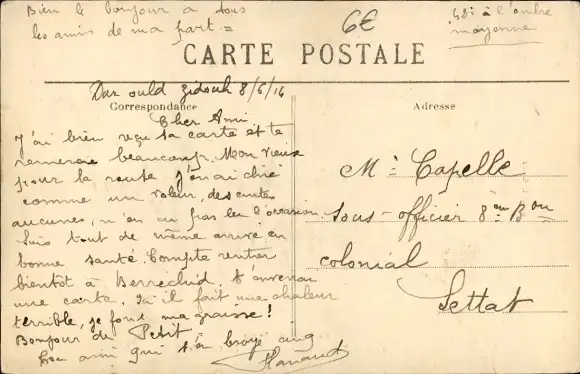 Bien le bonjour a tous
les amis de ma part =
6€
42° à l'ombre
moyenne
CARTE POSTALE
Dar ould Zidouh 8/6/14
Correspondance
Adresse
Cher Ami
J'ai bien reçu ta carte et te
remercie beaucoup. Mon vieux
pour la route j'en ai chié
comme un voleur, des cuites
aucunes, n'en eu pas eu l'occasion
Suis tout de même arrivé en
bonne santé. Compte rentrer
bientôt à Berrechid. T'enverrai
une carte. Ici il fait une chaleur
terrible, je fonds ma graisse!
Bonjour de Petit
Ton ami qui t'en broye cinq
Mr Capelle
Sous-officier 8em Bon
colonial
Settat